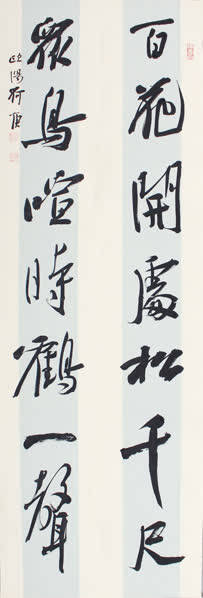 百花開處松千尺
眾鳥喧時鶴一聲
歐陽荷庚